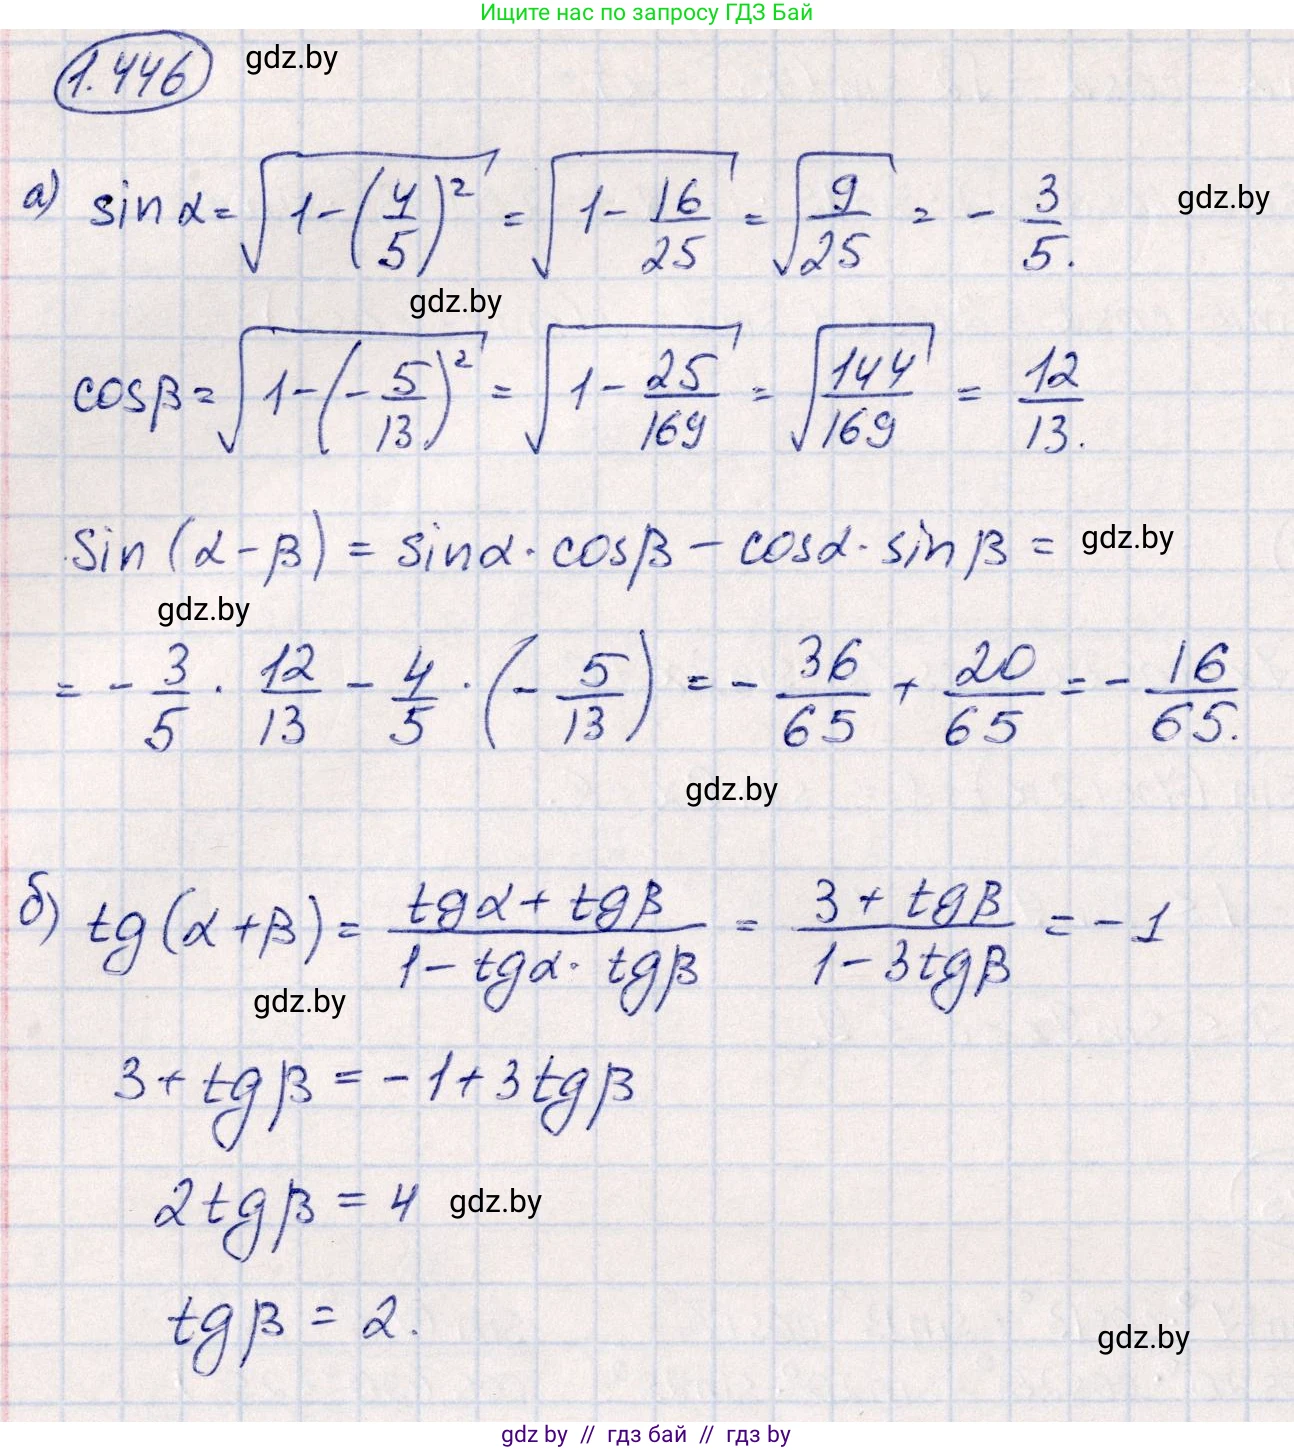 Ищите нас по запросу ГДЗ Бай
1.446 gdz.by
а) sin α = √(1 - (4/5)²) = √(1 - 16/25) = √(9/25) = - 3/5. gdz.by
gdz.by
cos β = √(1 - (- 5/13)²) = √(1 - 25/169) = √(144/169) = 12/13.
sin (α - β) = sin α · cos β - cos α · sin β = gdz.by
gdz.by
= - 3/5 · 12/13 - 4/5 · (- 5/13) = - 36/65 + 20/65 = - 16/65.
gdz.by
б) tg (α + β) = (tg α + tg β)/(1 - tg α · tg β) = (3 + tg β)/(1 - 3 tg β) = - 1
gdz.by
3 + tg β = - 1 + 3 tg β
2 tg β = 4 gdz.by
tg β = 2.
gdz.by
gdz by // гдз бай // гдз by